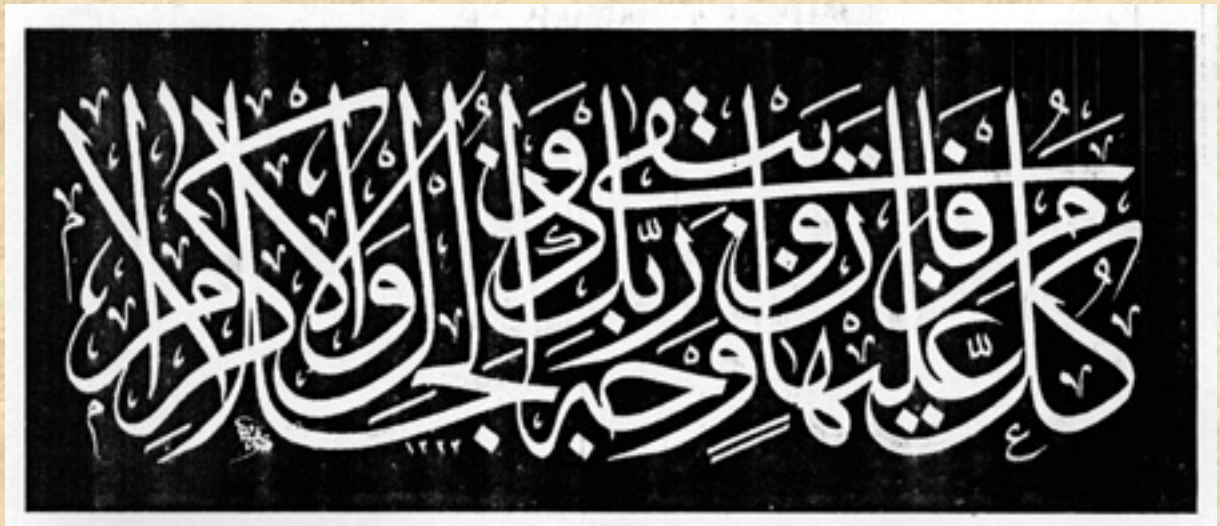 كُلُّ مَنْ عَلَيْهَا فَانٍ وَيَبْقَى وَجْهُ رَبِّكَ ذُو الْجَلَالِ وَالْاِكْرَامِ